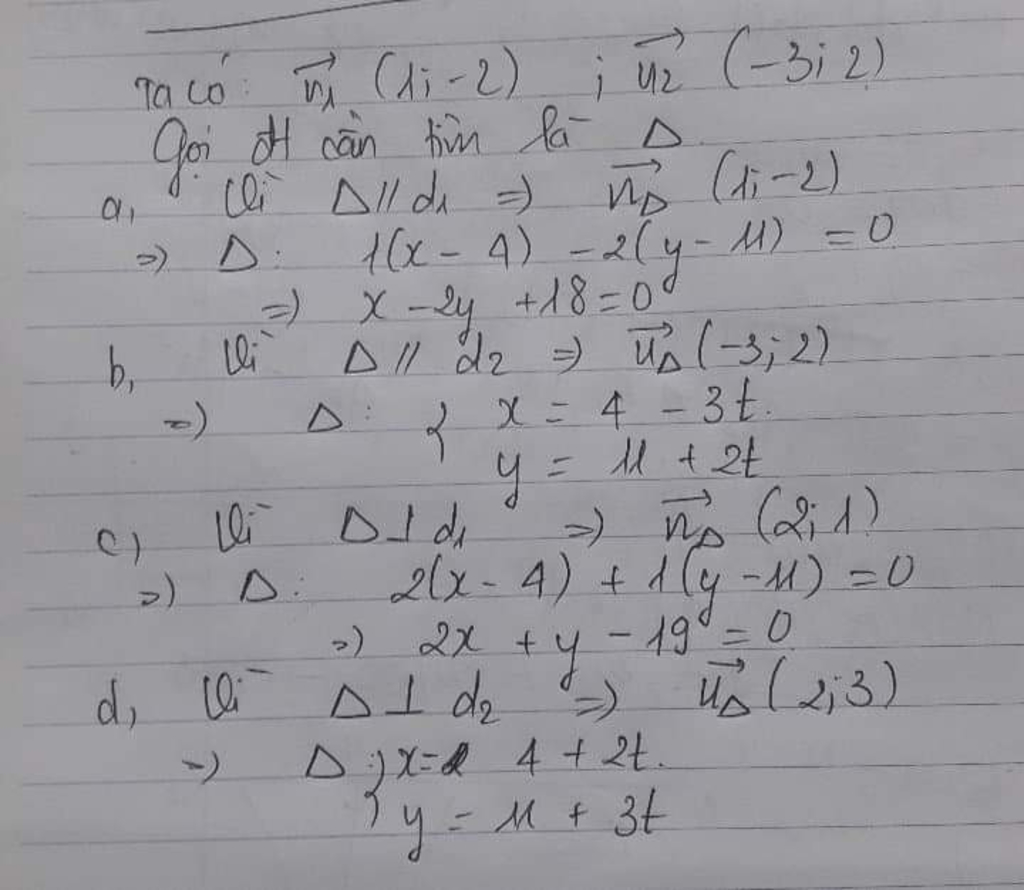 Ta có: n₁→ (1; -2) ; u₂→ (-3; 2)
Gọi đt cần tìm là Δ
a, Vì Δ // d₁ => n_Δ→ (1; -2)
=> Δ: 1(x - 4) - 2(y - 11) = 0
=> x - 2y + 18 = 0
b, Vì Δ // d₂ => u_Δ→ (-3; 2)
=> Δ: { x = 4 - 3t.
y = 11 + 2t
c, Vì Δ ⊥ d₁ => n_Δ→ (2; 1)
=> Δ: 2(x - 4) + 1(y - 11) = 0
=> 2x + y - 19 = 0
d, Vì Δ ⊥ d₂ => u_Δ→ (2; 3)
=> Δ: { x = 4 + 2t.
y = 11 + 3t